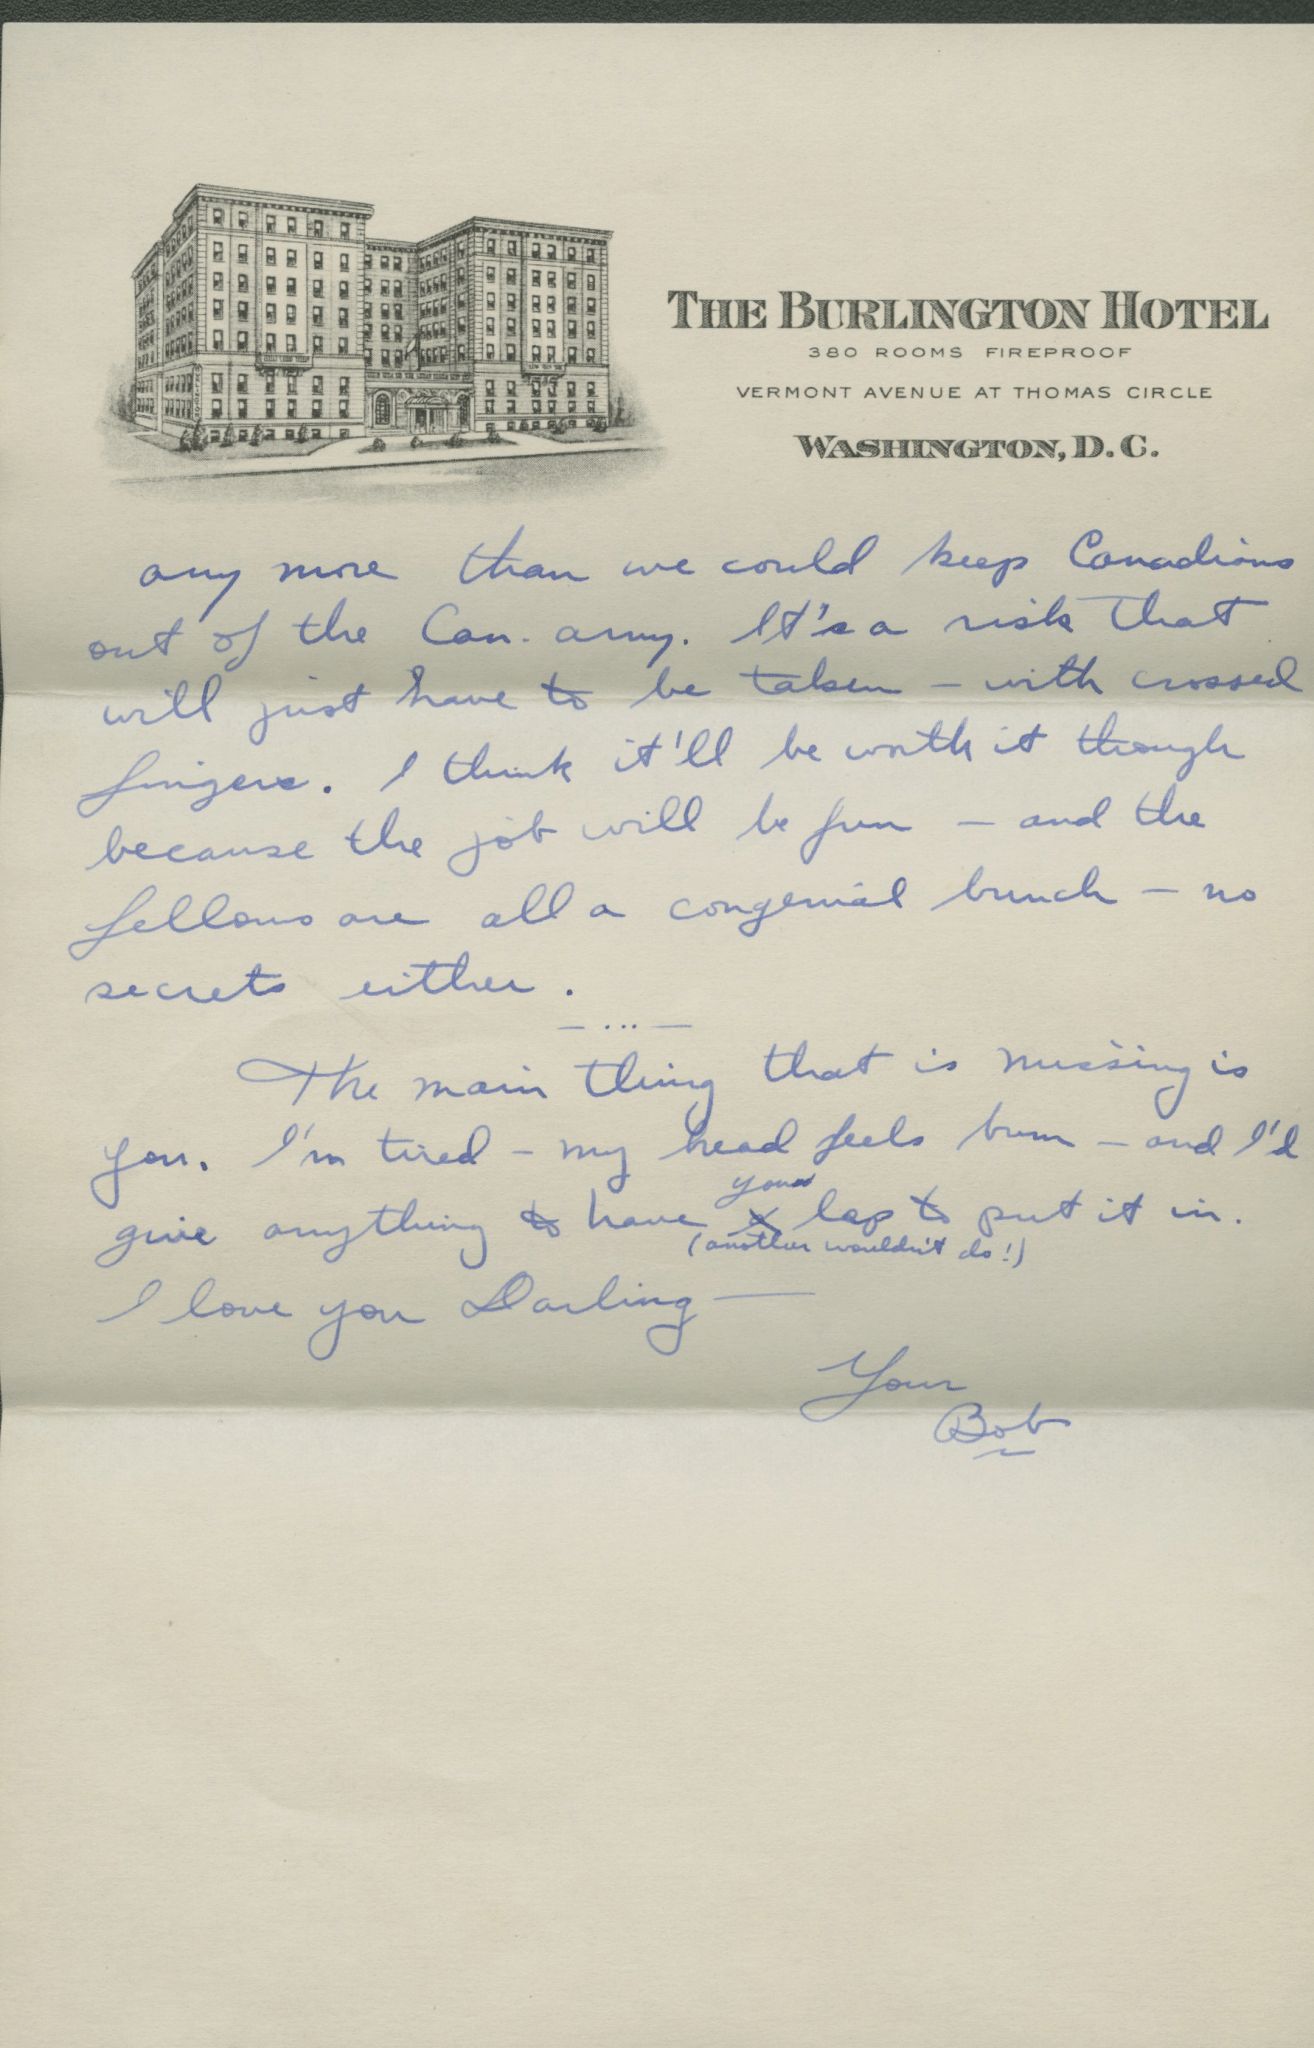 THE BURLINGTON HOTEL
380 ROOMS FIREPROOF
VERMONT AVENUE AT THOMAS CIRCLE
WASHINGTON, D.C.
any more than we could keep Canadians
out of the Can. army. It's a risk that
will just have to be taken – with crossed
fingers. I think it'll be worth it though
because the job will be fun – and the
fellows are all a congenial bunch – no
secrets either.
– ... –
The main thing that is missing is
you. I'm tired – my head feels bum – and I'd
your
give anything to have a lap to put it in.
(another wouldn't do!)
I love you Darling —
Your
Bob